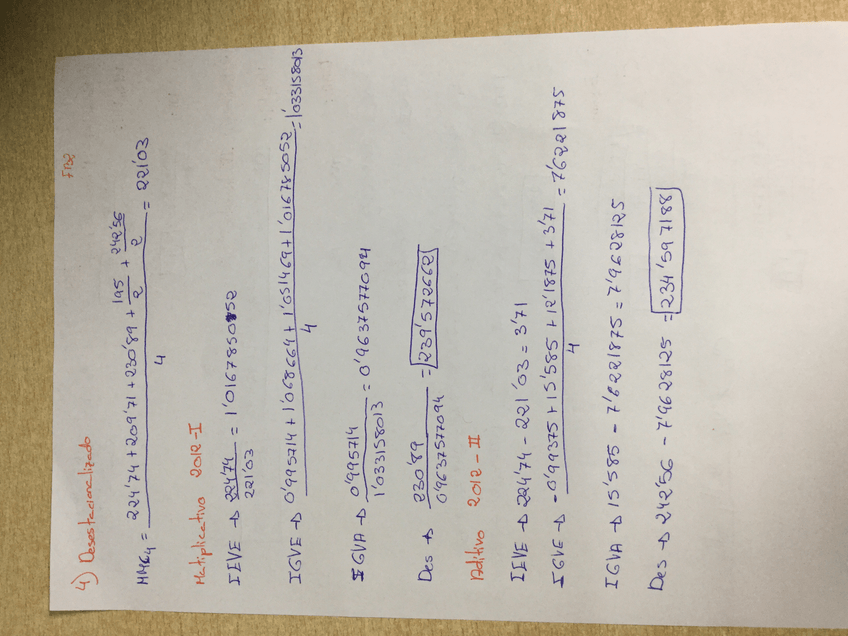 FIS2
4) Desestacionalizado
MMC4 = (224'74 + 209'71 + 230'89 + 195/2 + 242'56/2) / 4 = 221'03
Multiplicativo 2012-I
IEVE → 224'74 / 221'03 = 1'016785052
IGVE → (0'995714 + 1'068664 + 1'051469 + 1'016785052) / 4 = 1'033158013
IGVA → 0'995714 / 1'033158013 = 0'9637577094
Des → 230'89 / 0'9637577094 = 239'572662
Aditivo 2012-II
IEVE → 224'74 - 221'03 = 3'71
IGVE → (-0'99375 + 15'585 + 12'1875 + 3'71) / 4 = 7'6221875
IGVA → 15'585 - 7'6221875 = 7'9628125
Des → 242'56 - 7'9628125 = 234'597188